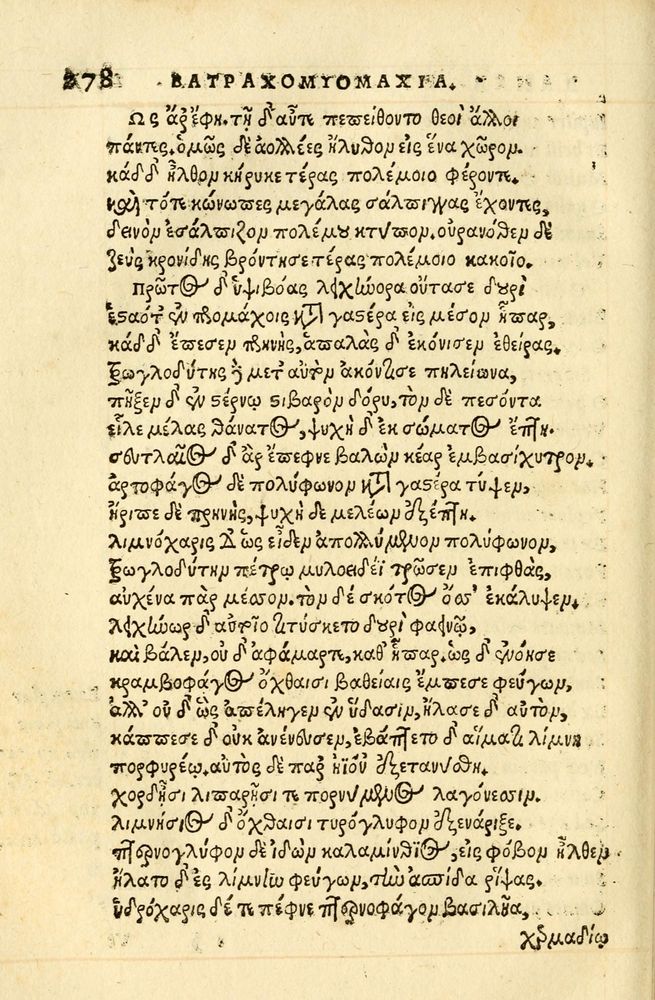 278 ΒΑΤΡΑΧΟΜΥΟΜΑΧΙΑ.
Ὣς ἄρ ἔφη. τῇ δ' αὖτε πεπείθοντο θεοὶ ἄλλοι
πάντες. ὁμῶς δὲ ἀολλέες ἤλυθον εἰς ἕνα χῶρον.
κὰδ δ' ἦλθον κήρυκε τέρας πολέμοιο φέροντε.
καὶ τότε κώνωπες μεγάλας σάλπιγγας ἔχοντες,
δεινὸν ἐσάλπιζον πολέμου κτύπον. οὐρανόθεν δὲ
ζεὺς κρονίδης βρόντησε τέρας πολέμοιο κακοῖο.
πρῶτος δ' ὑψιβόας λειχήνορα οὔτασε δουρὶ
ἑσταότ' ἐν προμάχοις κατὰ γαστέρα εἰς μέσον ἧπαρ,
κὰδ δ' ἔπεσεν πρηνὴς, ἁπαλὰς δ' ἐκόνισεν ἐθείρας.
τρωγλοδύτης δὲ μετ' αὐτὸν ἀκόντισε πηλείωνα,
πῆξεν δ' ἐν στέρνῳ στιβαρὸν δόρυ, τὸν δὲ πεσόντα
εἷλε μέλας θάνατος, ψυχὴ δ' ἐκ σώματος ἔπτη.
σευτλαῖος δ' ἂρ ἔπεφνε βαλὼν κέαρ ἐμβασίχυτρον.
ἀρτοφάγος δὲ πολύφωνον κατὰ γαστέρα τύψεν,
ἤριπε δὲ πρηνὴς, ψυχὴ δὲ μελέων ἐξέπτη.
λιμνόχαρις δ' ὡς εἶδεν ἀπολλύμενον πολύφωνον,
τρωγλοδύτην πέτρῳ μυλοειδέϊ τρῶσεν ἐπιφθὰς,
αὐχένα παρ μέσσον. τὸν δὲ σκότος ὄσσ' ἐκάλυψεν.
λειχήνωρ δ' αὐτοῖο τιτύσκετο δουρὶ φαεινῷ,
καὶ βάλεν, οὐ δ' ἀφάμαρτε, καθ' ἧπαρ. ὡς δ' ἐνόησε
κραμβοφάγος ὄχθαισι βαθείαις ἔμπεσε φεύγων,
ἀλλ' οὐ δ' ὣς ἀπέληγεν ἐν ὕδασιν, ἤλασε δ' αὐτὸν,
κάππεσε δ' οὐκ ἀνένευσεν, ἐβάπτετο δ' αἵματι λίμνη
πορφυρέῳ. αὐτὸς δὲ παρ' ἠϊόν' ἐξετανύσθη.
χορδῇσι λιπαρῇσί τε πορνύμενος λαγόνεσσιν.
λιμνήσιος δ' ὄχθαισι τυρόγλυφον ἐξενάριξε.
πτερνογλύφον δὲ ἰδὼν καλαμίνθιος, εἰς φόβον ἦλθεν
ἥλατο δ' ἐς λίμνην φεύγων, τὴν ἀσπίδα ῥίψας.
ὑδρόχαρις δέ τε πέφνε πτερνοφάγον βασιλῆα,
χερμαδίῳ